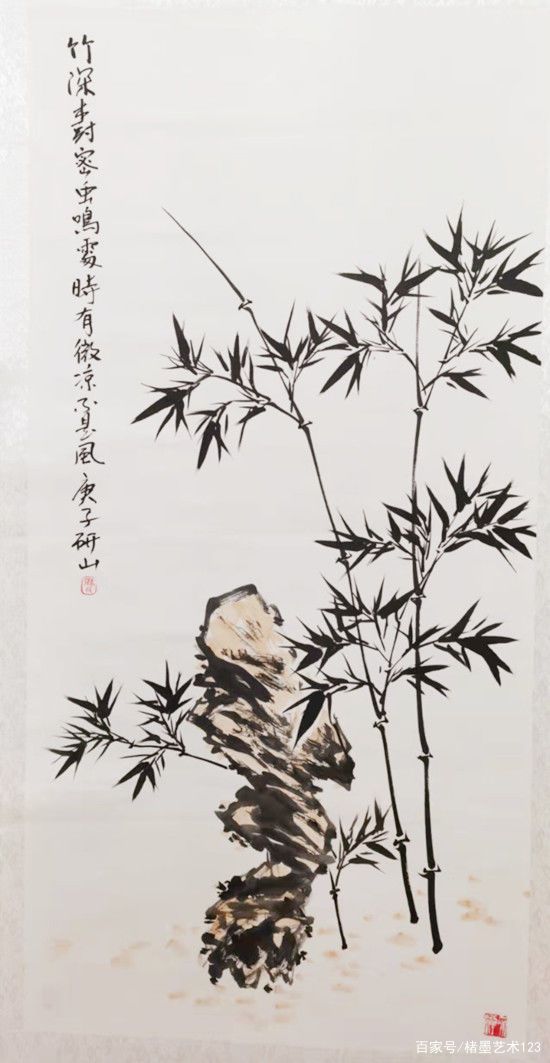 竹深封密虫鸣處時有微凉不是風庚子研山
百家号/楮墨艺术123